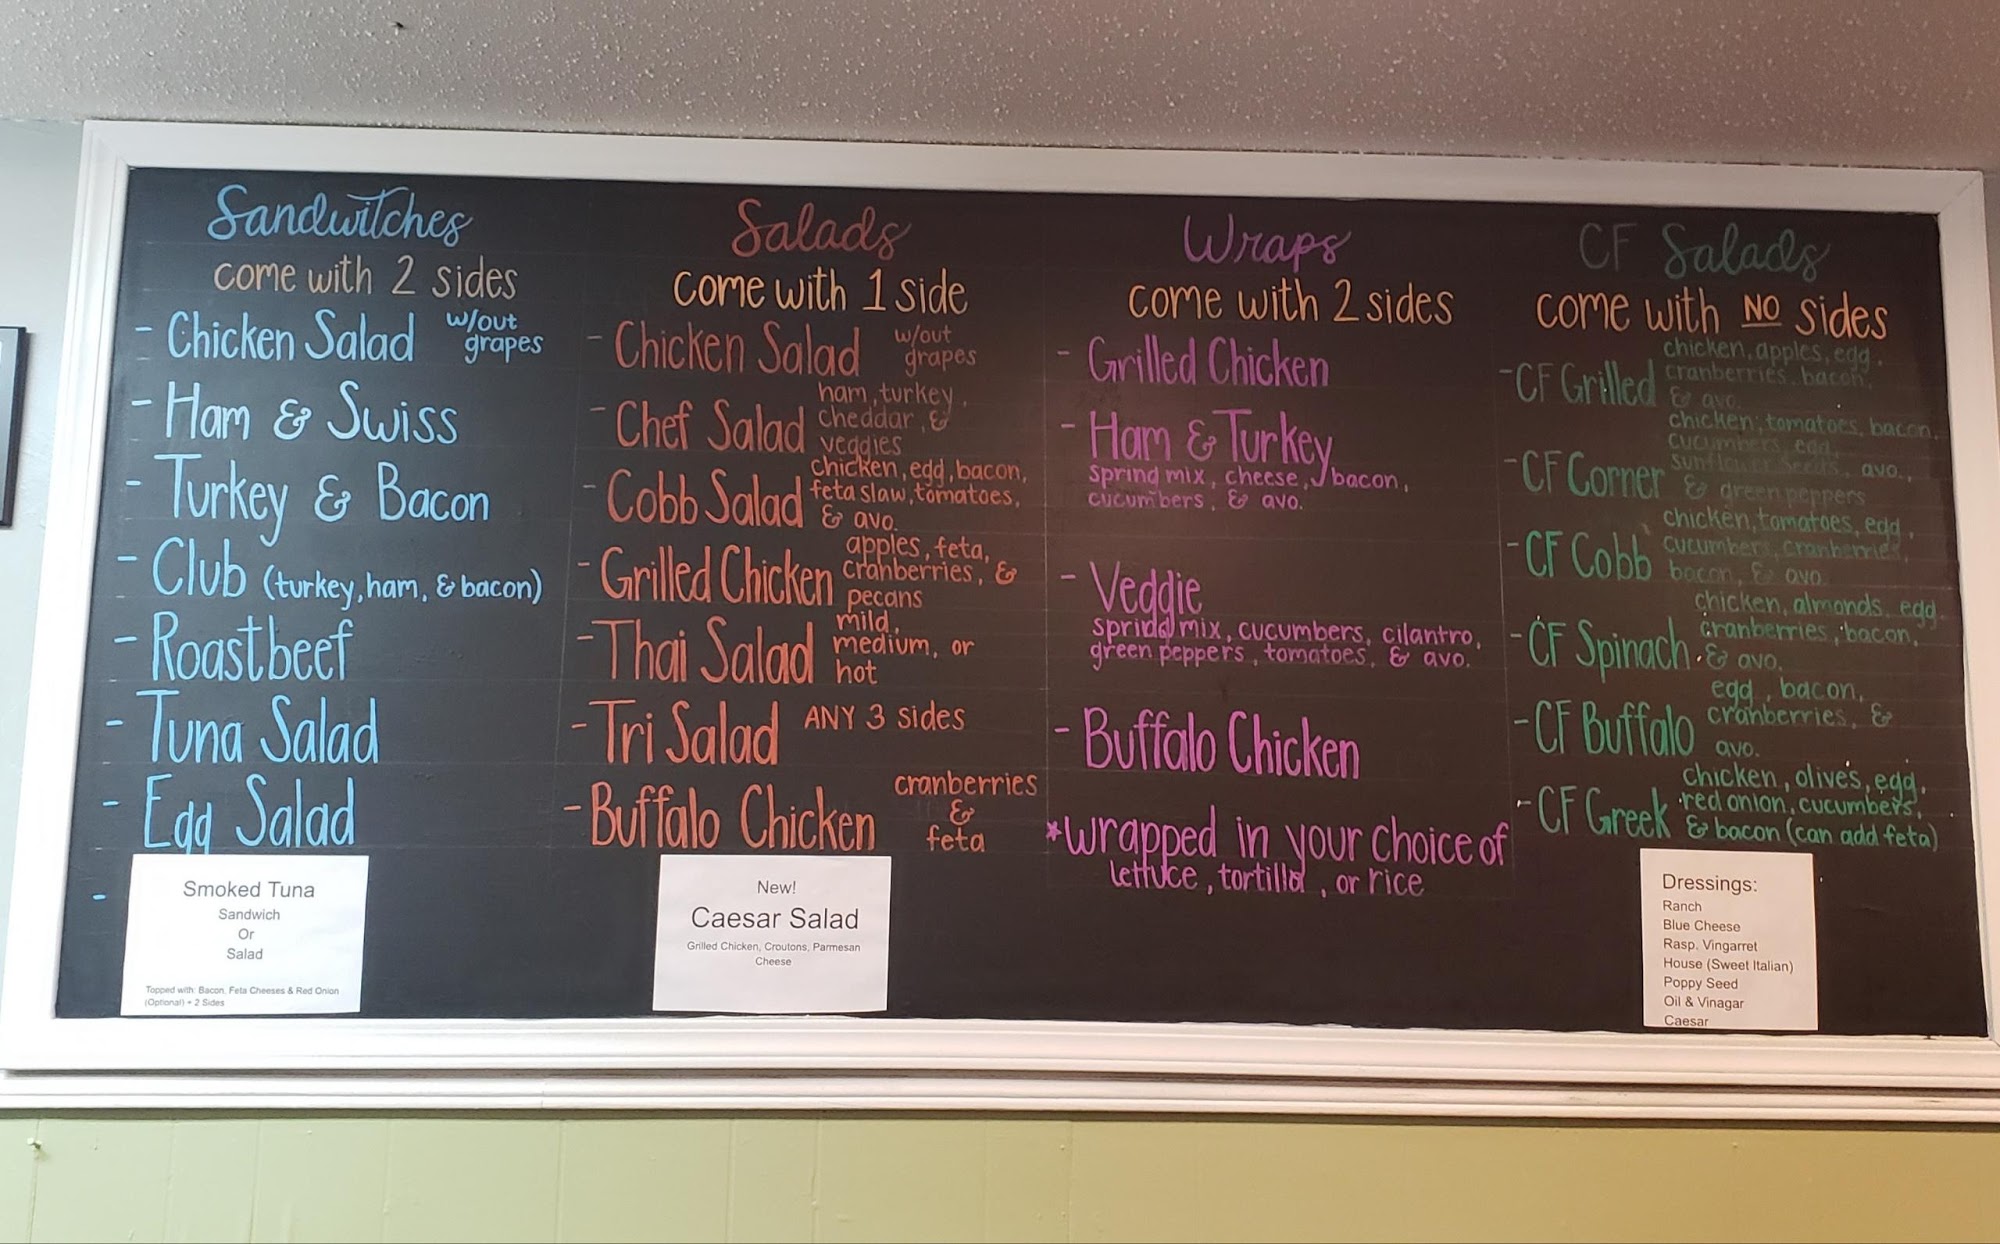 Sandwitches
come with 2 sides
- Chicken Salad w/out
grapes
- Ham & Swiss
- Turkey & Bacon
- Club (turkey, ham, & bacon)
- Roastbeef
- Tuna Salad
- Egg Salad
-
Smoked Tuna
Sandwich
Or
Salad
Topped with: Bacon, Feta Cheeses & Red Onion
(Optional) + 2 Sides
Salads
come with 1 side
- Chicken Salad w/out
grapes
- Chef Salad ham, turkey,
cheddar, &
veggies
- Cobb Salad chicken, egg, bacon,
feta slaw, tomatoes,
& avo.
- Grilled Chicken apples, feta,
cranberries, &
pecans
- Thai Salad mild,
medium, or
hot
- Tri Salad ANY 3 sides
- Buffalo Chicken cranberries
&
feta
New!
Caesar Salad
Grilled Chicken, Croutons, Parmesan
Cheese
Wraps
come with 2 sides
- Grilled Chicken
- Ham & Turkey
spring mix, cheese, bacon,
cucumbers, & avo.
- Veggie
spring mix, cucumbers, cilantro,
green peppers, tomatoes, & avo.
- Buffalo Chicken
*wrapped in your choice of
lettuce, tortilla, or rice
CF Salads
come with NO sides
- CF Grilled chicken, apples, egg,
cranberries, bacon,
& avo.
- CF Corner chicken, tomatoes, bacon,
cucumbers, egg,
sunflower seeds, avo.,
& green peppers
- CF Cobb chicken, tomatoes, egg,
cucumbers, cranberries,
bacon, & avo.
- CF Spinach chicken, almonds, egg,
cranberries, bacon,
& avo.
- CF Buffalo egg, bacon,
cranberries, &
avo.
- CF Greek chicken, olives, egg,
red onion, cucumbers,
& bacon (can add feta)
Dressings:
Ranch
Blue Cheese
Rasp. Vingarret
House (Sweet Italian)
Poppy Seed
Oil & Vinagar
Caesar